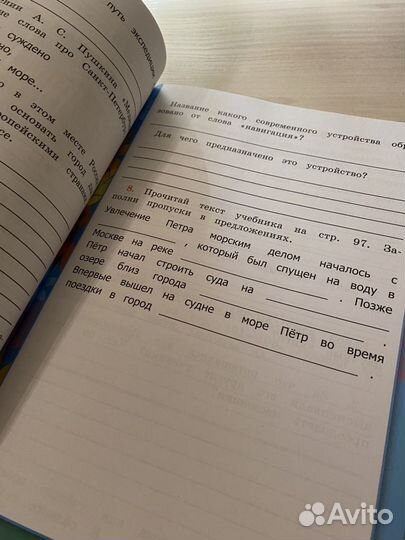 путь экспедиции
ении А. С. Пушкина «М
ие слова про Санкт-Петерб
суждено
но,
море...
о в этом месте Росс
основать город
ропейскими стран
се.
Название какого современного устройства обр
зовано от слова «навигация»?
Для чего предназначено это устройство?
8. Прочитай текст учебника на стр. 97. За-
полни пропуски в предложениях.
Увлечение Петра морским делом началось с
, который был спущен на воду в
Москве на реке . Позже
Пётр начал строить суда на
озере близ города .
Впервые вышел на судне в море Пётр во время
поездки в город .
Avito